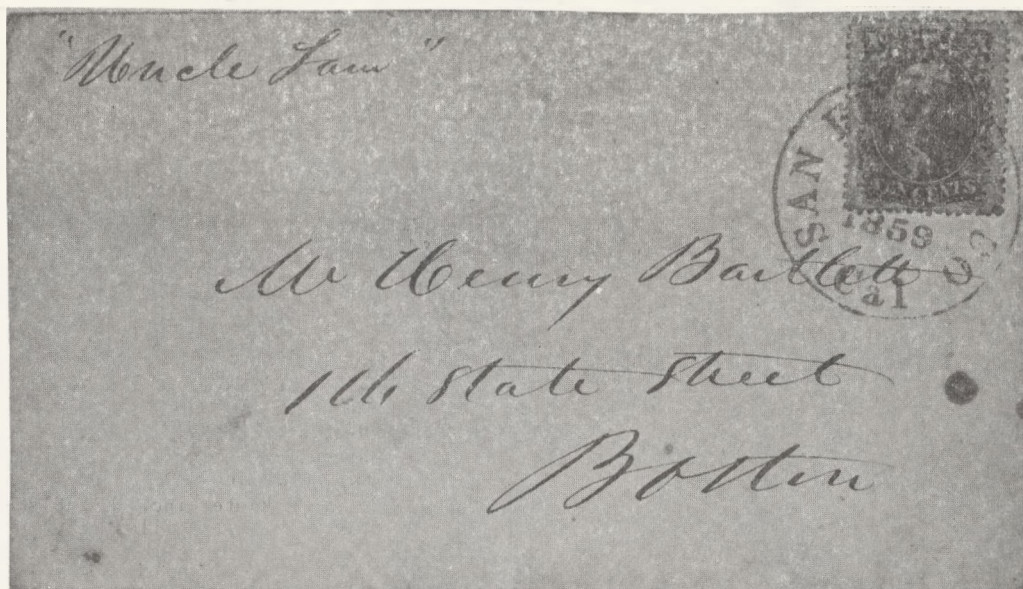 "Uncle Sam"
SAN F CO
1859
Cal
TEN CENTS
Mr Henry Bartlett
116 State Street
Boston